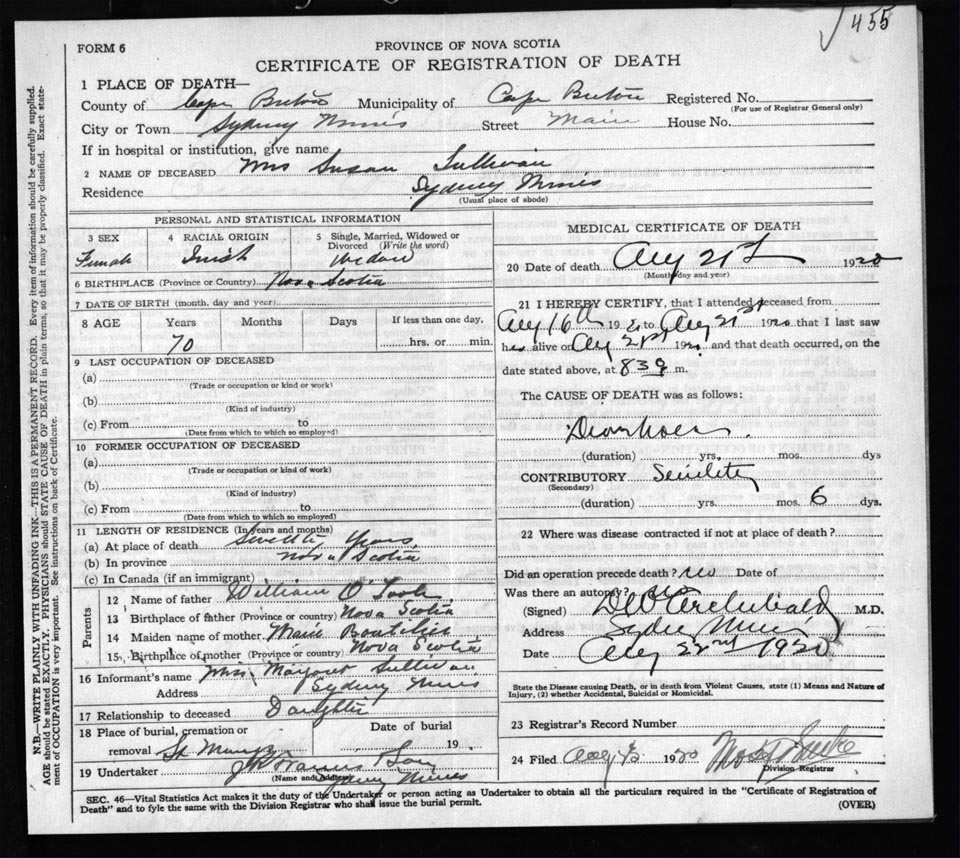 455
FORM 6
PROVINCE OF NOVA SCOTIA
CERTIFICATE OF REGISTRATION OF DEATH
1 PLACE OF DEATH—
County of Cape Breton Municipality of Cape Breton Registered No.
(For use of Registrar General only)
City or Town Sydney Mines Street Main House No.
If in hospital or institution, give name
2 NAME OF DECEASED Mrs Susan Sullivan
Residence Sydney Mines
(Usual place of abode)
N.B.—WRITE PLAINLY WITH UNFADING INK—THIS IS A PERMANENT RECORD. Every item of information should be carefully supplied.
AGE should be stated EXACTLY. PHYSICIANS should STATE CAUSE OF DEATH in plain terms, so that it may be properly classified. Exact statement of OCCUPATION is very important. See instructions on back of Certificate.
PERSONAL AND STATISTICAL INFORMATION
3 SEX
Female
4 RACIAL ORIGIN
Irish
5 Single, Married, Widowed or
Divorced (Write the word)
Widow
6 BIRTHPLACE (Province or Country) Nova Scotia
7 DATE OF BIRTH (month, day and year)
8 AGE Years Months Days If less than one day,
70 hrs. or min.
9 LAST OCCUPATION OF DECEASED
(a)
(Trade or occupation or kind or work)
(b)
(Kind of industry)
(c) From to
(Date from which to which so employed)
10 FORMER OCCUPATION OF DECEASED
(a)
(Trade or occupation or kind of work)
(b)
(Kind of industry)
(c) From to
(Date from which to which so employed)
11 LENGTH OF RESIDENCE (In years and months)
(a) At place of death Years
(b) In province Nova Scotia
(c) In Canada (if an immigrant)
Parents
12 Name of father William O'Toole
13 Birthplace of father (Province or country) Nova Scotia
14 Maiden name of mother Boutilier
15 Birthplace of mother (Province or country) Nova Scotia
16 Informant's name Mrs Margaret Sullivan
Address Sydney Mines
17 Relationship to deceased Daughter
18 Place of burial, cremation or
removal St
Date of burial
19
19 Undertaker Son
(Name and Address) Sydney Mines
MEDICAL CERTIFICATE OF DEATH
20 Date of death Aug 21st 1920
(Month, day and year)
21 I HEREBY CERTIFY, that I attended deceased from
Aug 16th 19 to Aug 21st 1920 that I last saw
h alive on Aug 21st 1920 and that death occurred, on the
date stated above, at m.
The CAUSE OF DEATH was as follows:
Diarrhoea
(duration) yrs. mos. dys
CONTRIBUTORY Senility
(Secondary)
(duration) yrs. mos. 6 dys.
22 Where was disease contracted if not at place of death?
Did an operation precede death? no Date of
Was there an autopsy? no
(Signed) Archibald M.D.
Address Mines
Date Aug 22nd 1920
State the Disease causing Death, or in death from Violent Causes, state (1) Means and Nature of
Injury, (2) whether Accidental, Suicidal or Homicidal.
23 Registrar's Record Number
24 Filed Aug 1920
Division Registrar
SEC. 46—Vital Statistics Act makes it the duty of the Undertaker or person acting as Undertaker to obtain all the particulars required in the "Certificate of Registration of
Death" and to fyle the same with the Division Registrar who shall issue the burial permit.
(OVER)